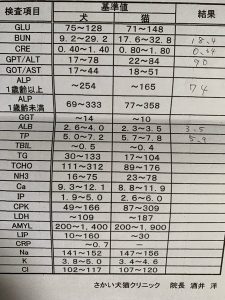 検査項目 基準値 結果
犬 猫
GLU 75~128 71~148
BUN 9.2~29.2 17.6~32.8 18.4
CRE 0.40~1.40 0.80~1.80
GPT/ALT 17~78 22~84 90
GOT/AST 17~44 18~51
ALP
1歳齢以上 ~254 ~165 74
ALP
1歳齢未満 69~333 77~358
GGT ~14 ~10
ALB 2.6~4.0 2.3~3.5 3.5
TP 5.0~7.2 5.7~7.8
TBIL ~0.5 ~0.4
TG 30~133 17~104
TCHO 111~312 89~176
NH3 16~75 23~78
Ca 9.3~12.1 8.8~11.9
IP 1.9~5.0 2.6~6.0
CPK 49~166 87~309
LDH ~109 ~187
AMYL 200~1,400 200~1,900
LIP 10~160 ~30
CRP ~0.7 -
Na 141~152 147~156
K 3.8~5.0 3.4~4.6
Cl 102~117 107~120
さかい犬猫クリニック 院長 酒井 洋